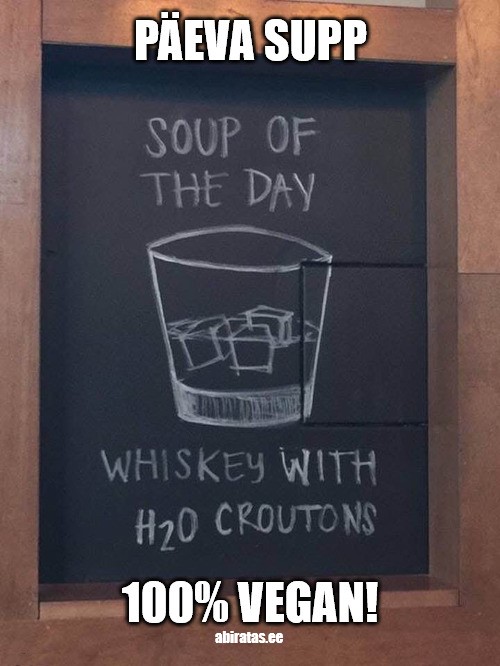 PÄEVA SUPP
SOUP OF
THE DAY
WHISKEY WITH
H2O CROUTONS
100% VEGAN!
abiratas.ee